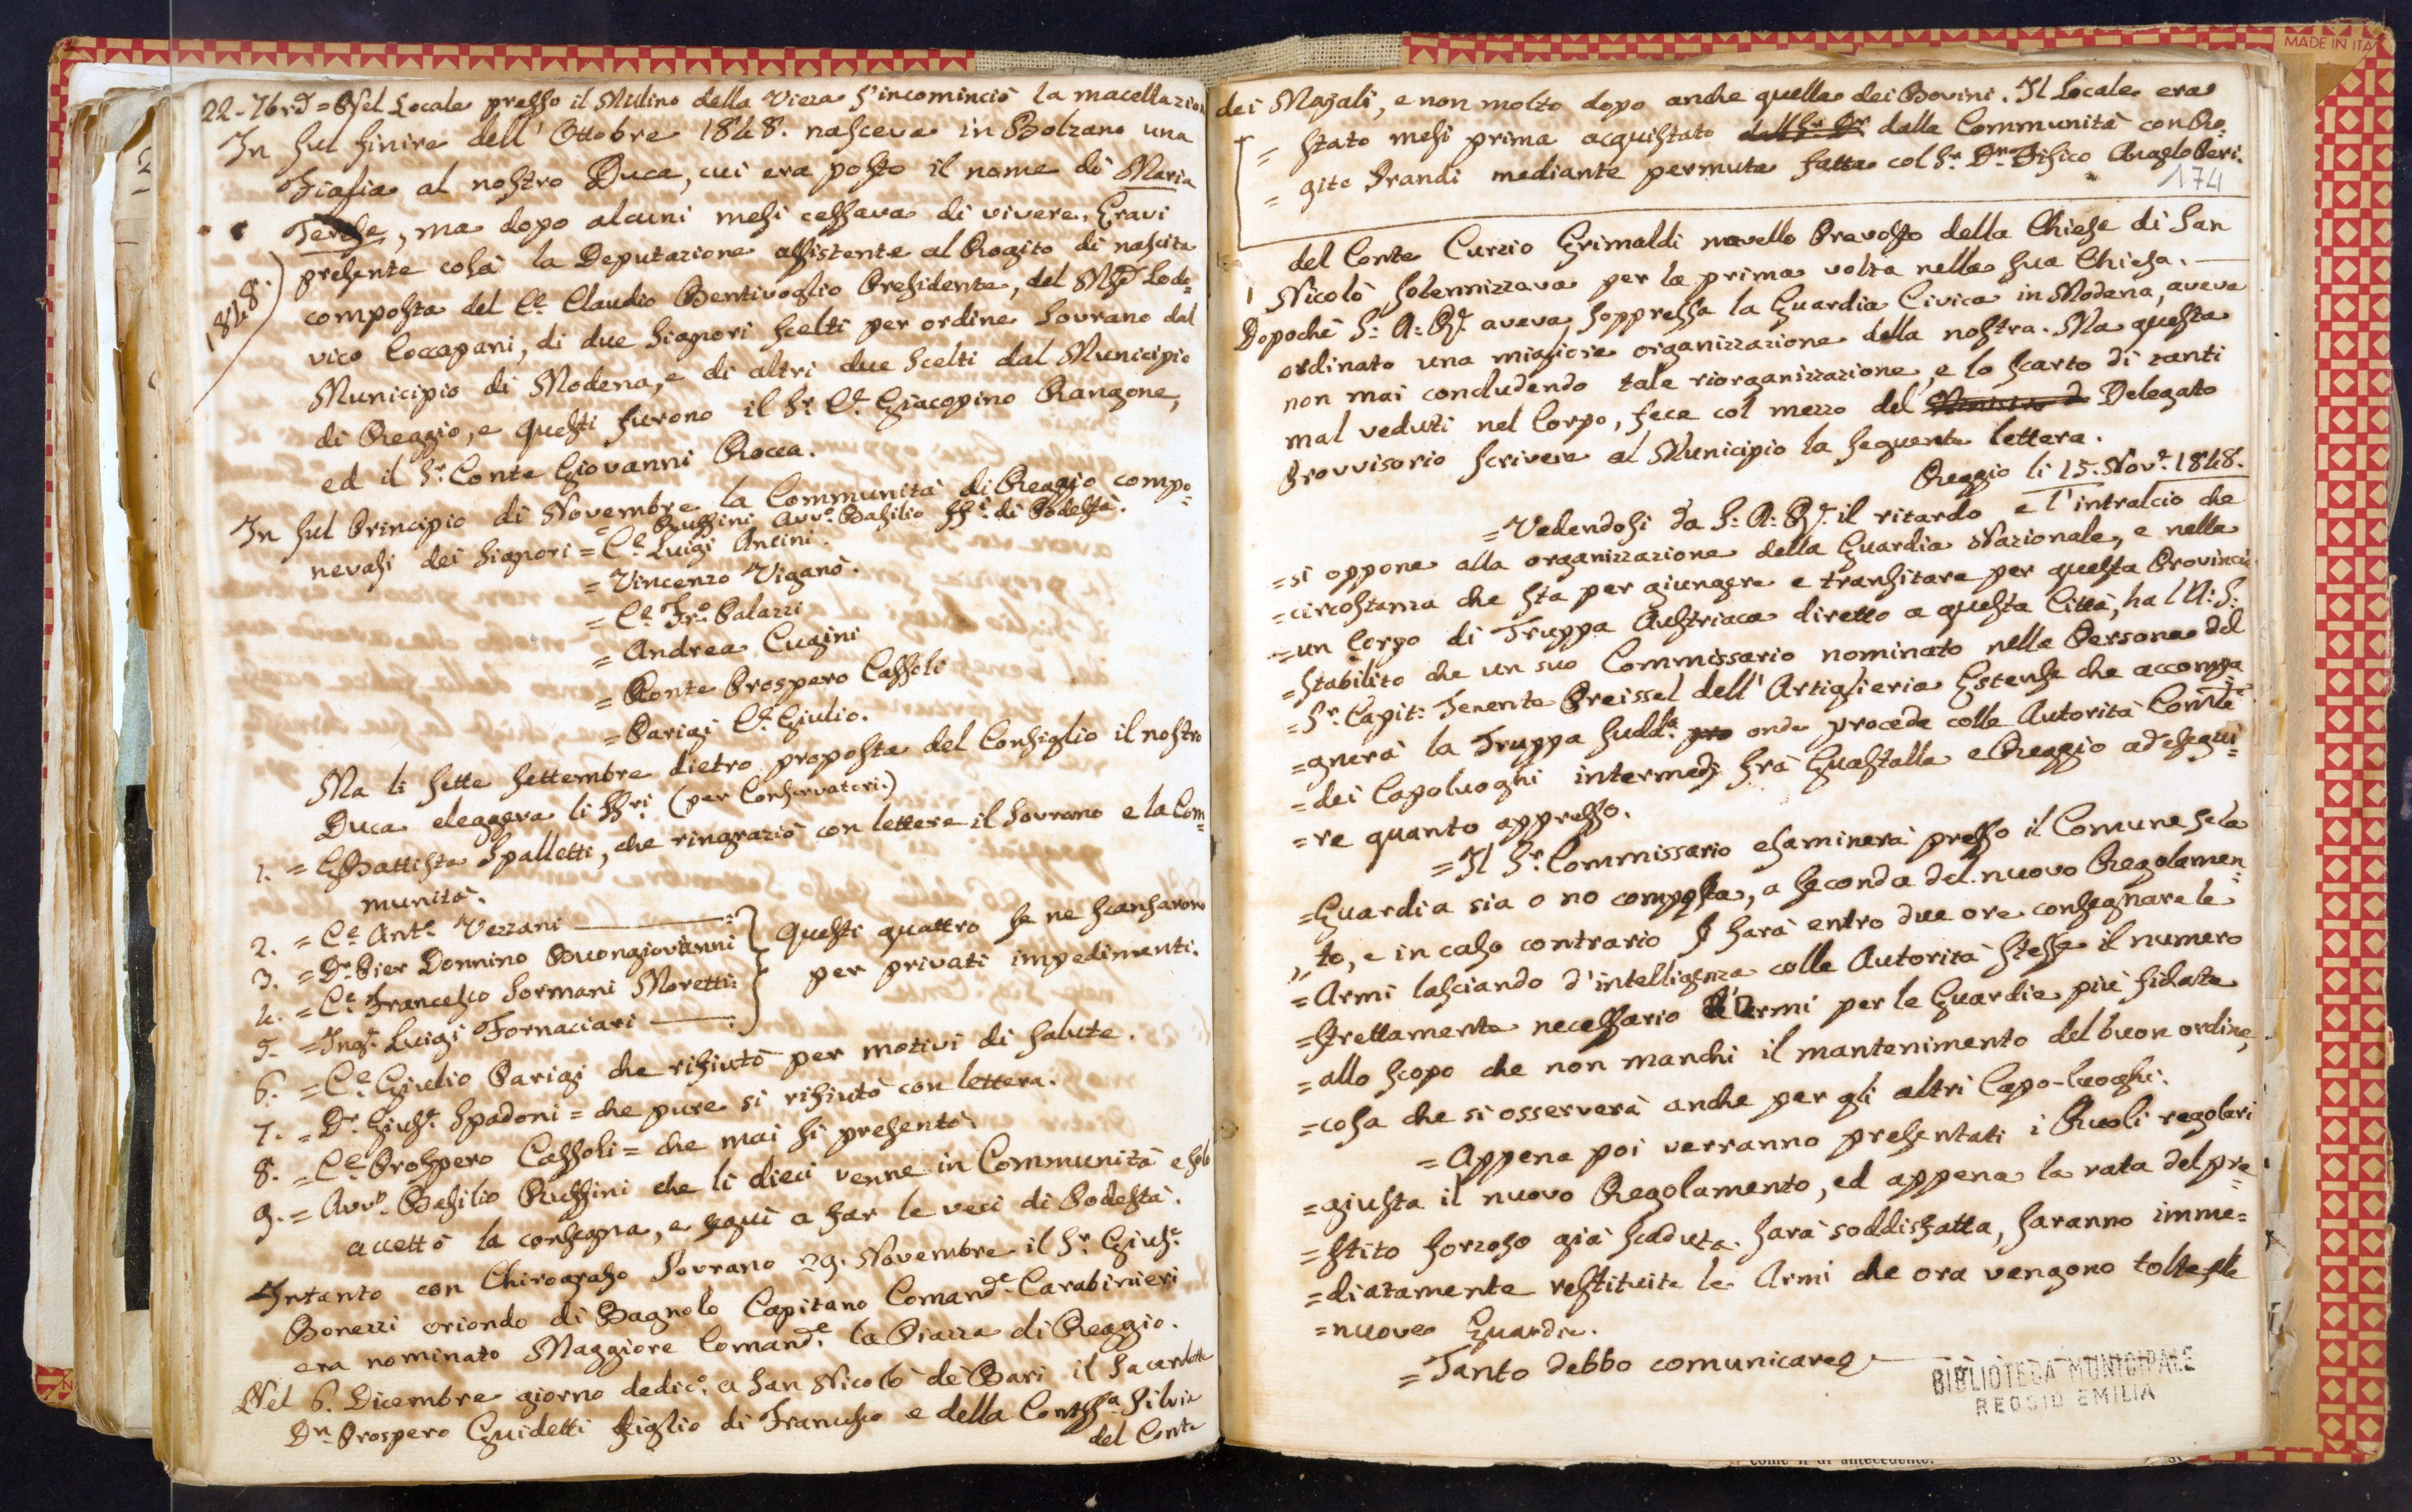 22-7brē = Nel Locale presso il Mulino della Vieza s'incominciò la macellazion
In sul finire dell'Ottobre 1848. nasceva in Bolzano una
Figlia al nostro Duca, cui era posto il nome di Maria
Terese, ma dopo alcuni mesi cessava di vivere. Eravi
1848.
presente colà la Deputazione assistente al Rogito di nascita
composta del Ce. Claudio Bentivoglio Presidente, del Mse Lodo=
vico Coccapani, di due Signori scelti per ordine Sovrano dal
Municipio di Modena, e di altri due scelti dal Municipio
di Reggio, e questi furono il Sr. Ce. Giacopino Rangone,
ed il Sr. Conte Giovanni Rocca.
In sul Principio di Novembre la Communità di Reggio compo=
= Ruffini Avvo. Basilio ff. di Podestà.
nevasi dei Signori = Ce. Luigi Ancini.
= Vincenzo Viganò.
= Ce. Fro. Palazzi
= Andrea Cugini
= Conte Prospero Cassoli
= Parigi Ce. Giulio.
Ma li sette Settembre dietro proposta del Consiglio il nostro
Duca eleggeva li SSri (per Conservatori.)
1. = GBattista Spalletti, che ringraziò con lettere il Sovrano e la Com=
munità.
2. = Ce. Anto. Vezzani
3. = Dr. Pier Donnino Buongiovanni
4. = Ce. Francesco Sormani Moretti:
5. = Ingr. Luigi Fornaciari
Questi quattro se ne scansarono
per privati impedimenti.
6. = Ce. Giulio Parigi che rifiutò per motivi di salute.
7. = Dr. Giuse. Spadoni = che pure si rifiutò con lettera.
8. = Ce. Prospero Cassoli = che mai si presentò.
9. = Avvo. Basilio Ruffini che li dieci venne in Communità e solo
accettò la consegna, e seguì a far le veci di Podestà.
Intanto con Chirografo Sovrano 29. Novembre il Sr. Giuse.
Bonezzi oriondo di Bagnolo Capitano Comande. Carabinieri
era nominato Maggiore Comande. la Piazza di Reggio.
Nel 6. Dicembre giorno dedico. a San Nicolò de Bari il Sacerdote
Dn. Prospero Guidetti figlio di Francesco e della Contssa. Silvia
del Conte
dei Majali, e non molto dopo anche quella dei Bovini. Il Locale era
= stato mesi prima acquistato dalla Communità con Ro=
= gito Prandi mediante permuta fatta col Sr. Dn. Fisico Angelo Peri.
174
del Conte Curzio Grimaldi novello Prevosto della Chiese di San
Nicolò solennizzava per la prima volta nella sua Chiesa.
Dopochè S: A: R. aveva soppressa la Guardia Civica in Modena, aveva
ordinato una migliore organizzazione della nostra. Ma questa
non mai concludendo tale riorganizzazione, e lo scarto di tanti
mal veduti nel Corpo, fece col mezzo del Delegato
Provvisorio scrivere al Municipio la seguente lettera.
Reggio li 15. Nove. 1848.
= Vedendosi da S: A: R. il ritardo e l'intralcio che
= si oppone alla organizzazione della Guardia Nazionale, e nella
= circostanza che sta per giungere e transitare per questa Provincia
= un Corpo di Truppa Austriaca diretto a questa Città, ha l'A: S:
= stabilito che un suo Commissario nominato nella Persona del
= Sr. Capit: Tenente Preissel dell'Artiglieria Estense che accompa
= gnerà la Truppa sudda. onde proceda colle Autorità Comle.
= dei Capoluoghi intermedj frà Guastalla e Reggio ad esegui=
= re quanto appresso.
= Il Sr. Commissario esaminerà presso il Comune se la
= Guardia sia o no composta, a seconda del nuovo Regolamen=
= to, e in caso contrario farà entro due ore consegnare le
= Armi lasciando d'intelligenza colle Autorità stesse il numero
= strettamente necessario d'Armi per le Guardie più fidate
= allo scopo che non manchi il mantenimento del buon ordine,
= cosa che si osserverà anche per gli altri Capo-luoghi.
= Appena poi verranno presentati i Ruoli regolari
= giusta il nuovo Regolamento, ed appena la rata del pre=
= stito forzoso già scaduta sarà soddisfatta, saranno imme=
= diatamente restituite le Armi che ora vengono tolte alle
= nuove Guardie.
= Tanto debbo comunicare
BIBLIOTECA MUNICIPALE
REGGIO EMILIA
MADE IN ITA
come il dì antecedente.